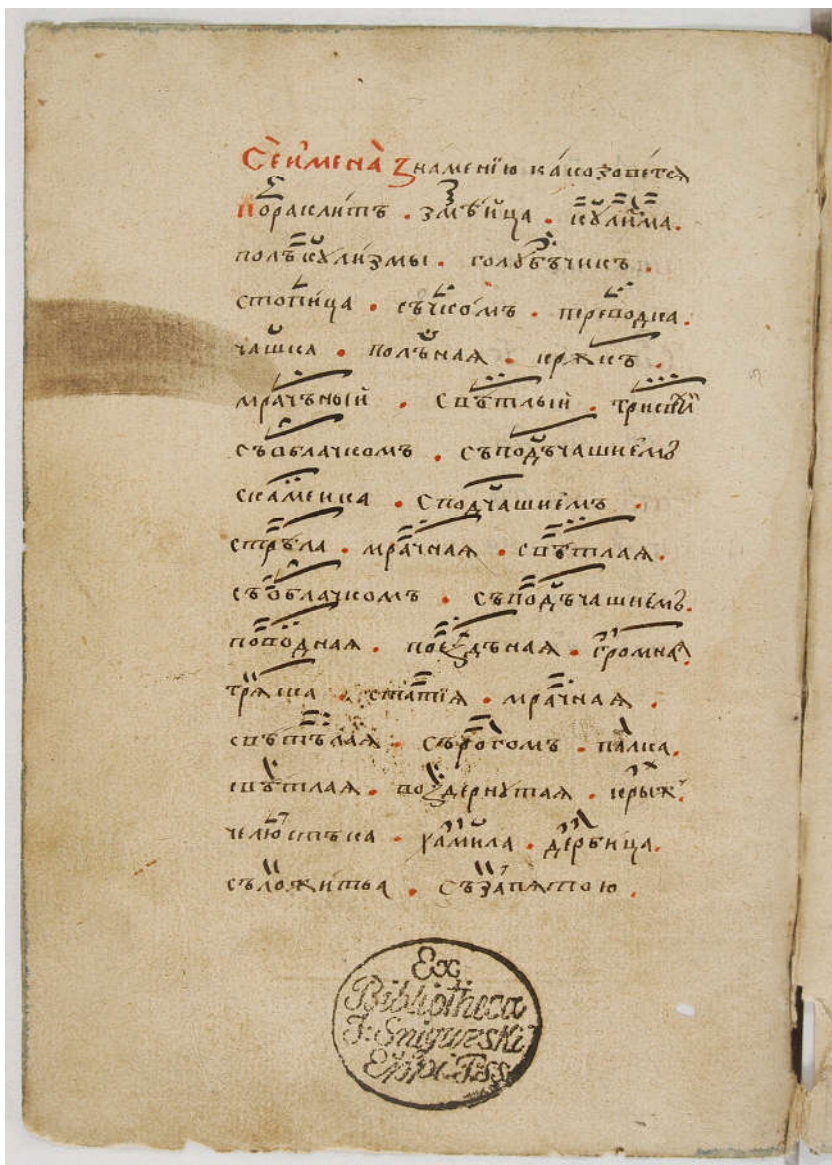 Се имена знаменїю како зоветсѧ
пораклитъ . змѣица . кꙋлизма.
полъкꙋлизмы . голꙋбъчикъ .
стопица . съчкомъ . переводка.
чашка . полънаѧ . крѧкъ .
мрачъный . свѣтлый . трисвѣ
съѡблачкомъ . съподъчашиемъ
скамеика . сподчашиемъ .
стрѣла . мрачнаѧ . свѣтлаѧ .
съоблачкомъ . съподъчашиемъ.
поводнаѧ . поездънаѧ . громнаѧ.
трѧска . статїѧ . мрачнаѧ .
свѣтълаѧ . сърогомъ . палка.
свѣтлаѧ . воздернꙋтаѧ . крыж.
челюстъка . хамила . дербица.
съложитьа . съзапѧтою .
Ex
Bibliotheca
J: Snigurski
Eppi Pss